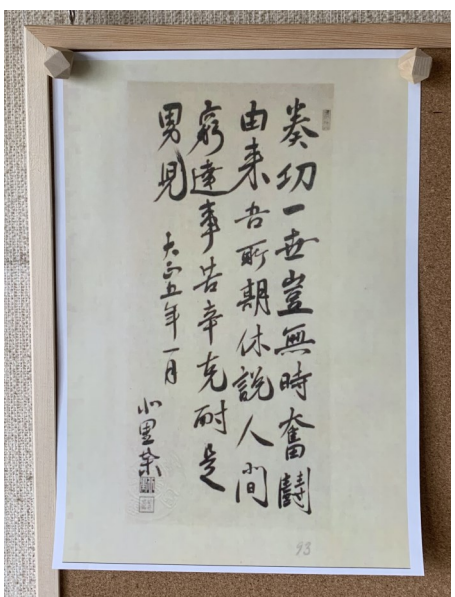 奏功一世豈無時奮鬪
由来吾所期休説人間
窮達事苦辛克耐是
男児
大正五年一月
北里柴
93